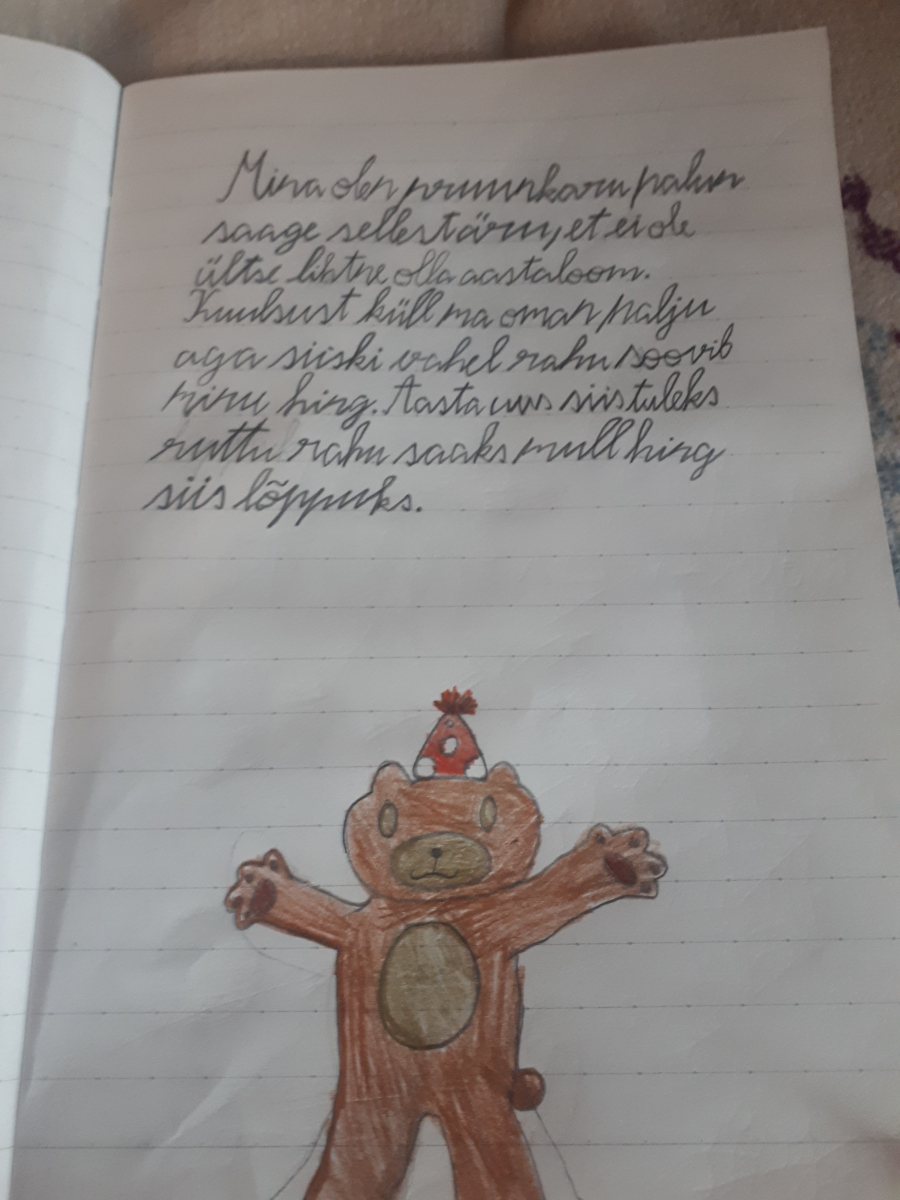 Mina olen pruunkaru palun
saage sellest äru, et ei ole
ültse lihtne olla aastaloom.
Kuulsust küll ma oman palju
aga siiski vahel rahu soovib
minu hing. Aasta uus siis tuleks
ruttu rahu saaks mull hing
siis lõppuks.